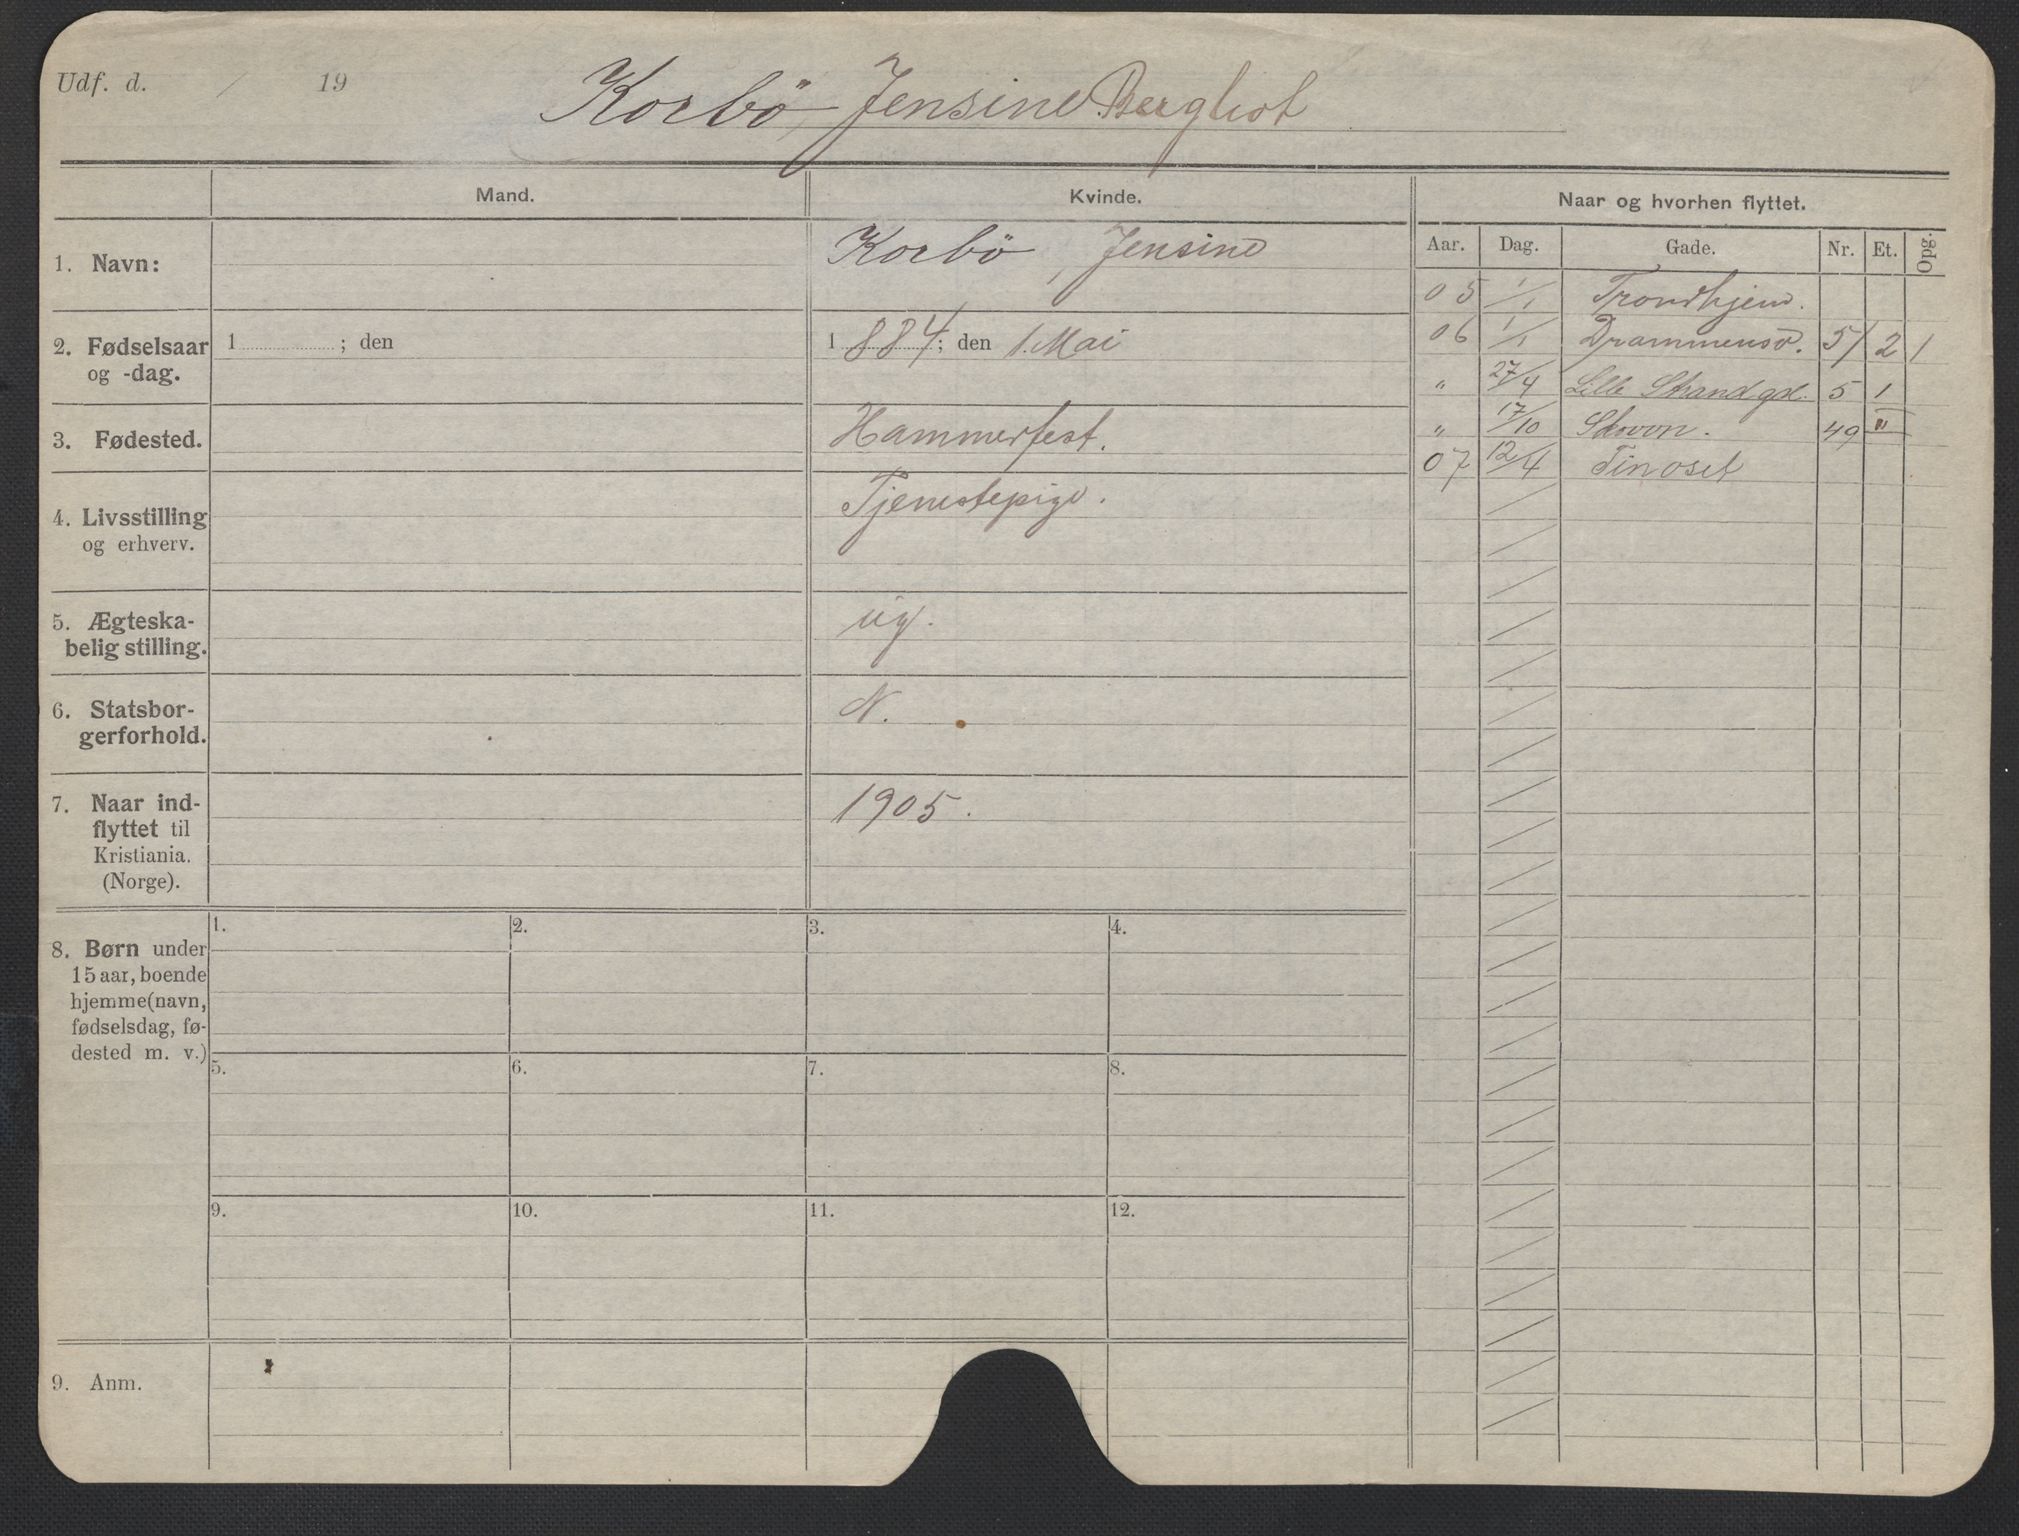 Udf. d. / 19
Korbö, Jensine Bergliot
Mand.
Kvinde.
Naar og hvorhen flyttet.
Aar. Dag. Gade. Nr. Et. Opg.
1. Navn:
Korbö, Jensine
05 1/1 Trondhjem.
2. Fødselsaar
og -dag.
1 ; den
1884; den 1. Mai
06 1/1 Drammensv. 5 / 2 1
" 27/4 Lille Strandgd. 5 1
3. Fødested.
Hammerfest.
" 17/10 Skovvn. 49 II
07 12/4 Tinoset
4. Livsstilling
og erhverv.
Tjenestepige.
5. Ægteska-
belig stilling.
ug.
6. Statsbor-
gerforhold.
N.
7. Naar ind-
flyttet til
Kristiania.
(Norge).
1905.
8. Børn under
15 aar, boende
hjemme (navn,
fødselsdag, fø-
dested m. v.)
1. 2. 3. 4.
5. 6. 7. 8.
9. 10. 11. 12.
9. Anm.